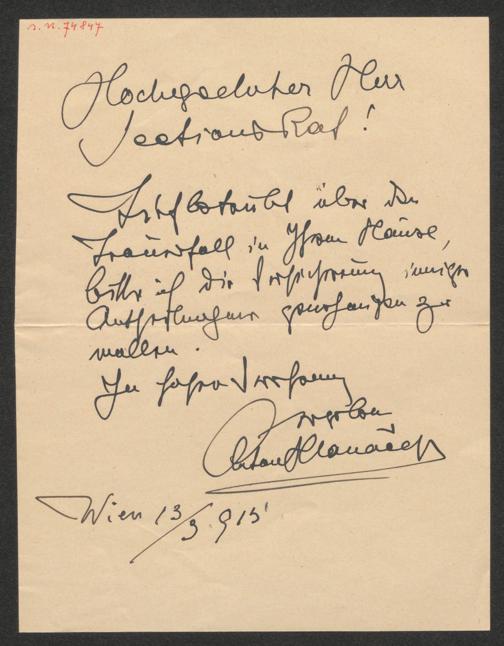 I. N. 74847
Hochgeehrter Herr
Sectionsrat!
Tiefbetrübt über den
Trauerfall in Ihrem Hause,
bitte ich die Versicherung inniger
Antheilnahme genehmigen zu
wollen.
In hoher Verehrung
ergeben
Anton Hlaváček
Wien 13/3. 915